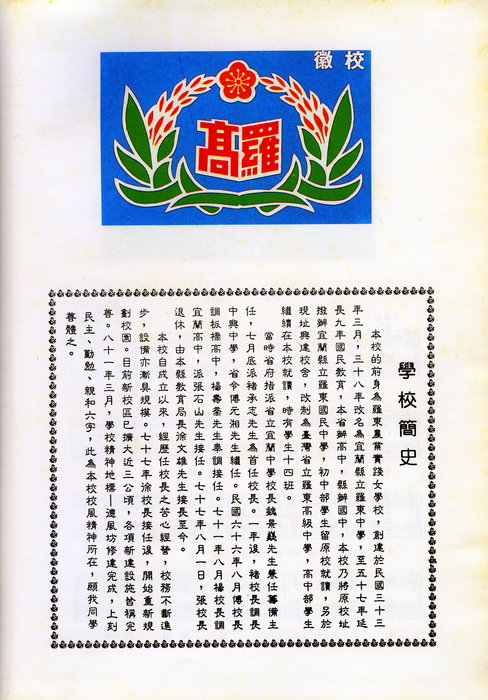 徽校
羅高
學校簡史
本校的前身為羅東農業實踐女學校，創建於民國三十三
年三月，三十八年改名為宜蘭縣立羅東中學，至五十七年延
長九年國民教育，本省辦高中，縣辦國中，本校乃將原校址
撥辦宜蘭縣立羅東國民中學，初中部學生留原校就讀，另於
現址興建校舍，改制為臺灣省立羅東高級中學，高中部學生
繼續在本校就讀，時有學生十四班。
當時省府指派省立宜蘭中學校長魏景嶷先生兼任籌備主
任，七月底派褚承志先生為首任校長。一年後，褚校長調長
中興中學，省令傅元湘先生繼任。民國六十六年八月傅校長
調板橋高中，楊壽耋先生奉調接任。七十一年八月楊校長調
宜蘭高中，派張石山先生接任。七十七年八月一日，張校長
退休，由本縣教育局長徐文雄先生接長至今。
本校自成立以來，經歷任校長之苦心經營，校務不斷進
步，設備亦漸具規模。七十七年徐校長接任後，開始重新規
劃校園。目前新校區已擴大近三公頃，各項新建設施皆稱完
善。八十一年三月，學校精神地標—德風坊修建完成，上刻
民主、勤勉、親和六字，此為本校校風精神所在，願我同學
善體之。